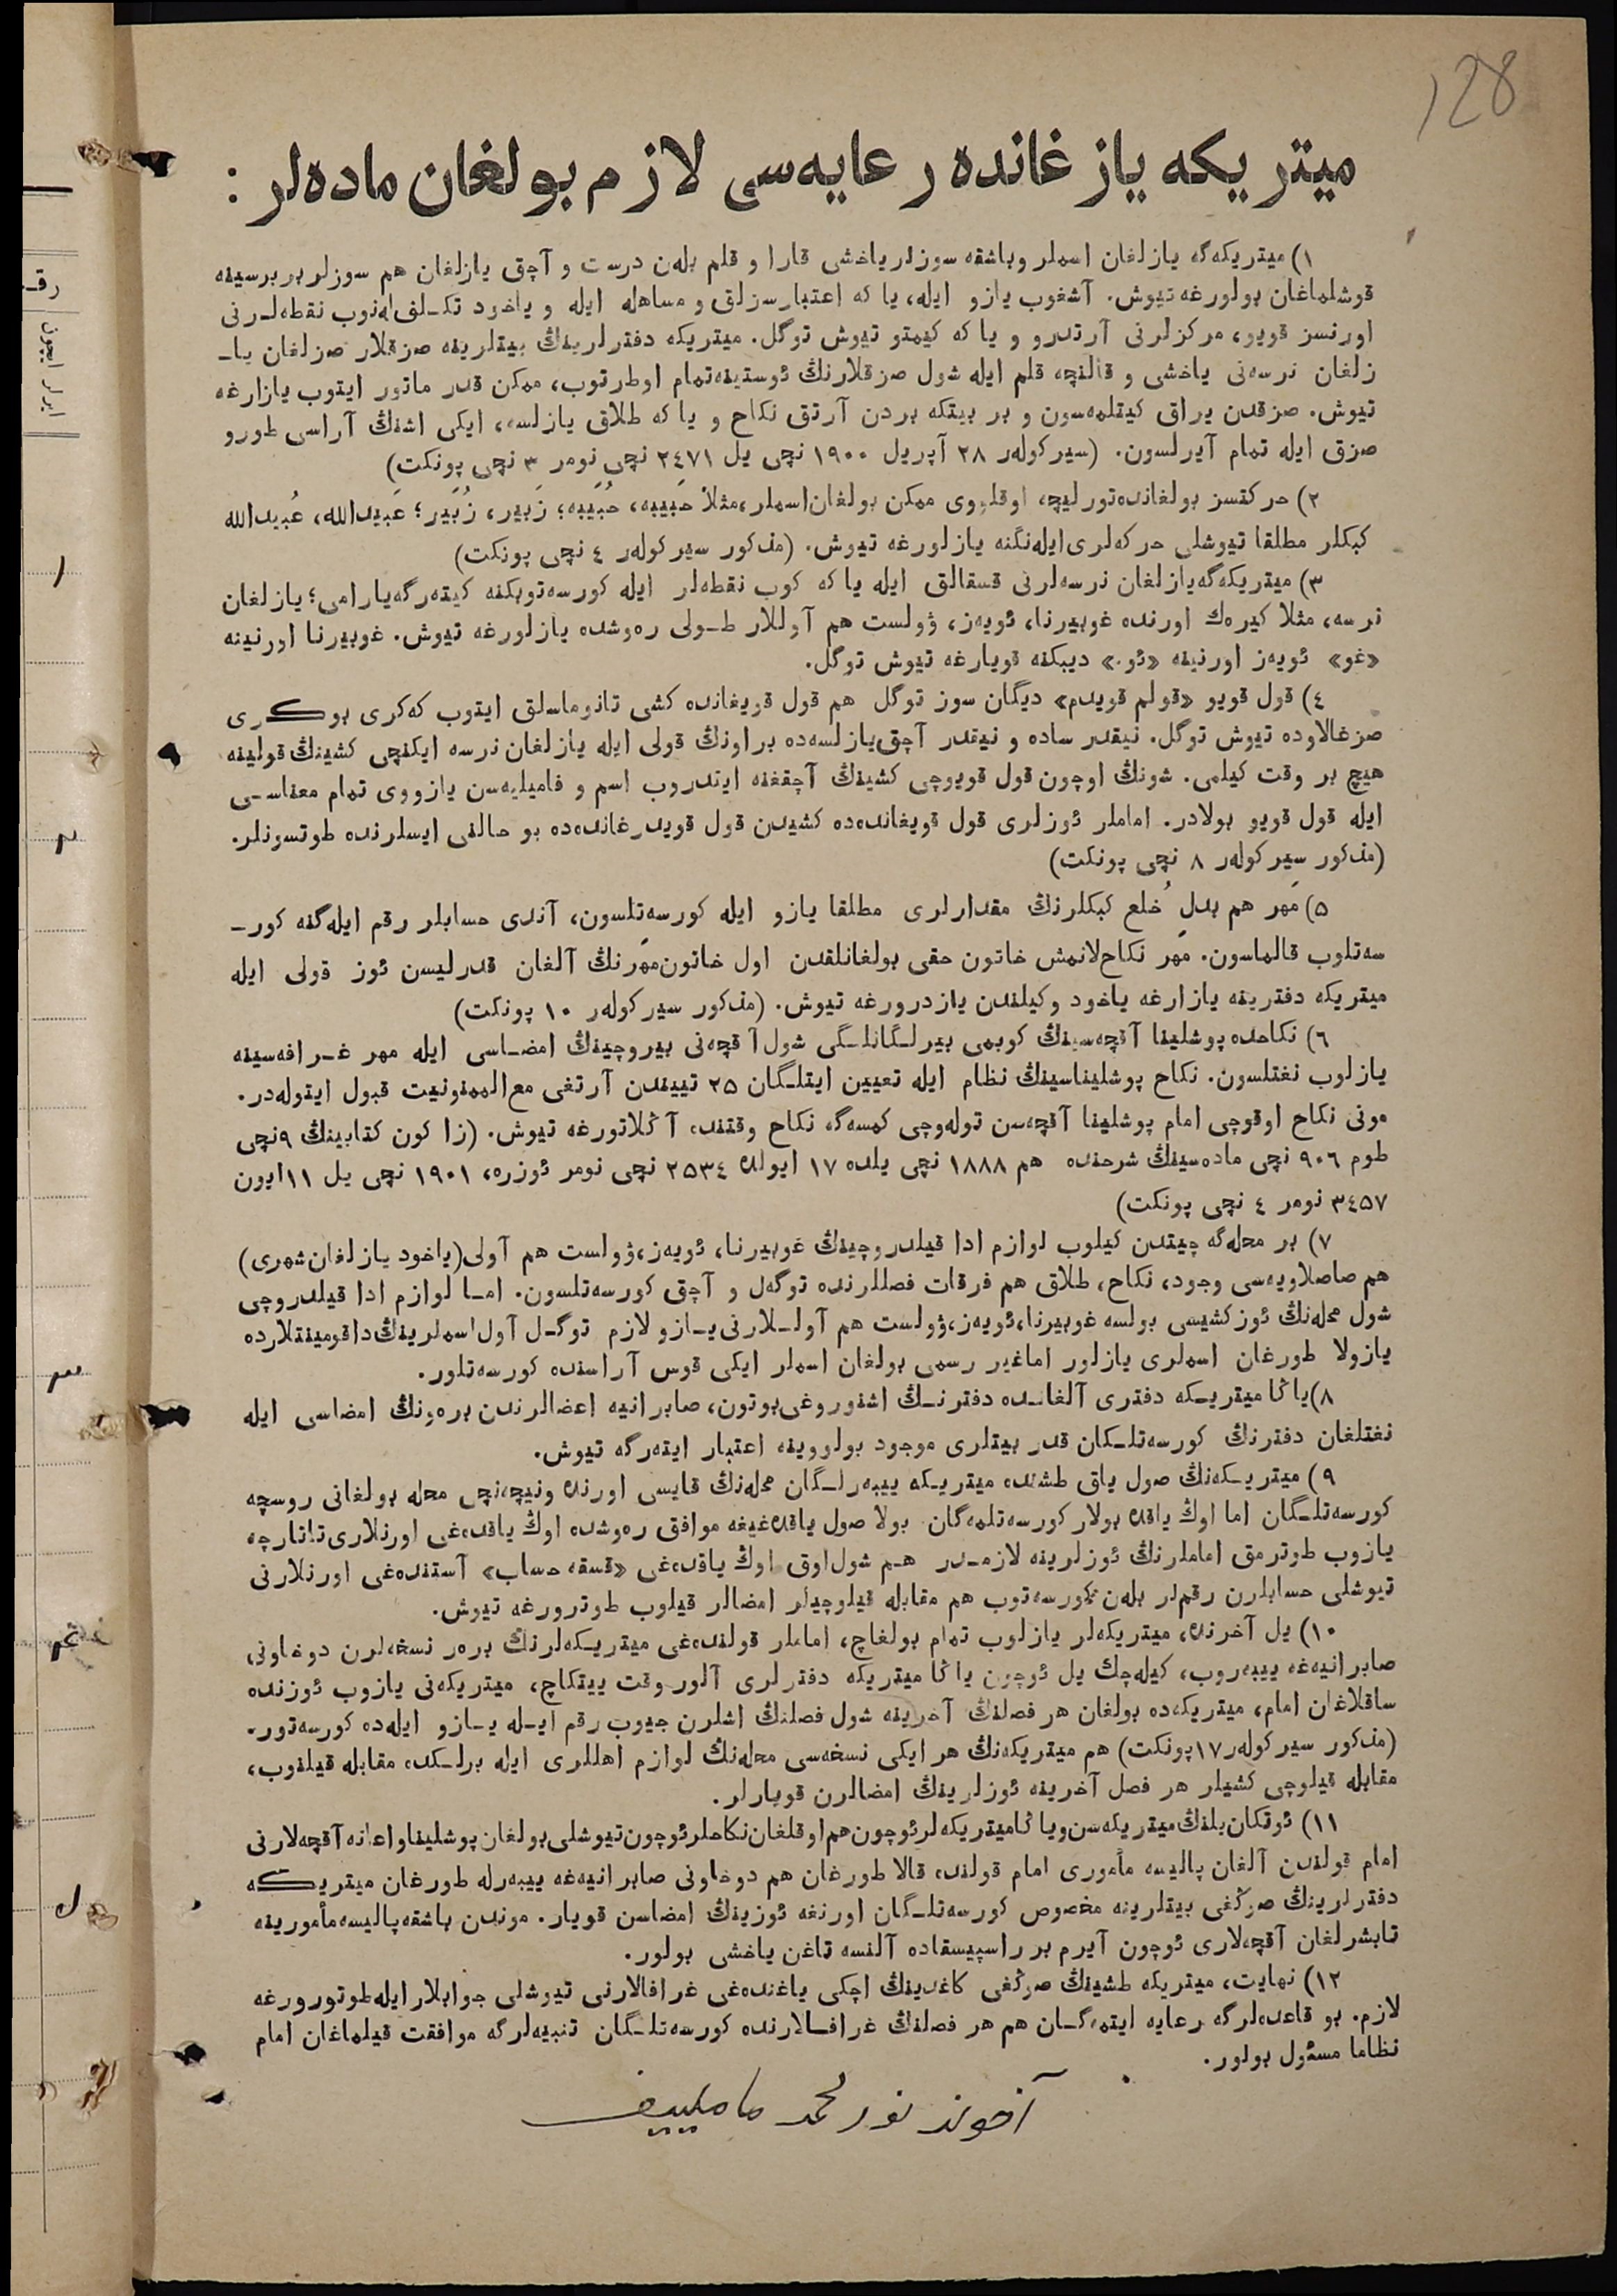 128
ميتريكه يازغانده رعايه‌سى لازم بولغان ماده‌لر :
١) ميتريكه‌گه يازلغان اسملر وباشقه سوزلر ياخشى قارا و قلم بله‌ن درست و آچق يازلغان هم سوزلر بر برسينه
قوشلماغان بولورغه تيوش. آشغوب يازو ايله، يا كه اعتبارسزلق و مساهله ايله و ياخود تكـلف له‌نوب نقطه‌لـرنى
اورنسز قويو، مركزلرنى آرتدرو و يا كه كيمتو تيوش توگل. ميتريكه دفترلرينڭ بيتلرينه صزقلار صزلغان يا-
زلغان نرسه‌نى ياخشى و قالنچه قلم ايله شول صزقلارنڭ ئوستينه تمام اوطرتوب، ممكن قدر ماتور ايتوب يازارغه
تيوش. صزقدن يراق كيتلمه‌سون و بر بيتكه بردن آرتق نكاح و يا كه طلاق يازلسه، ايكى اشنڭ آراسى طورو
صزق ايله تمام آيرلسون. (سيركوله‌ر ٢٨ آپريل ١٩٠٠ نچى يل ٢٤٧١ نچى نومر ٣ نچى پونكت)
٢) حركتسز بولغانده تورليچه اوقلووى ممكن بولغان اسملر، مثلا حَبيبه، حُبَيبه؛ زَبير، زُبَير؛ عَبيدالله، عُبيدالله
كبكلر مطلقا تيوشلى حركه‌لرى ايله‌نگنه يازلورغه تيوش. (مذكور سيركوله‌ر ٤ نچى پونكت)
٣) ميتريكه‌گه يازلغان نرسه‌لرنى قسقالق ايله يا كه كوب نقطه‌لر ايله كورسه‌توبكنه كيته‌رگه يارامى؛ يازلغان
نرسه، مثلا كيره‌ك اورنده غوبيرنا، ئويه‌ز، ۋولست هم آوللار طـولى ره‌وشده يازلورغه تيوش. غوبيرنا اورنينه
«غو» ئويه‌ز اورنينه «ئو.» ديبكنه قويارغه تيوش توگل.
٤) قول قويو «قولم قويدم» ديگان سوز توگل هم قول قويغانده كشى تانوماسلق ايتوب كه‌كرى بوكـرى
صزغالاوده تيوش توگل. نيقدر ساده و نيقدر آچق يازلسه‌ده براونڭ قولى ايله يازلغان نرسه ايكنچى كشينڭ قولينه
هيچ بر وقت كيلمى. شونڭ اوچون قول قويوچى كشينڭ آچقغنه ايتدروب اسم و فاميليه‌سن يازووى تمام معناسـى
ايله قول قويو بولادر. اماملر ئوزلرى قول قويغانده‌ده كشيدن قول قويدرغانده‌ده بو حالنى ايسلرنده طوتسونلر.
(مذكور سيركوله‌ر ٨ نچى پونكت)
٥) مَهر هم بدلِ خُلع كبكلرنڭ مقدارلرى مطلقا يازو ايله كورسه‌تلسون، آندى حسابلر رقم ايله‌گنه كور-
سه‌تلوب قالماسون. مَهر نكاح‌لانمش خاتون حقى بولغانلقدن اول خاتون مَهرنڭ آلغان قدرليسن ئوز قولى ايله
ميتريكه دفترينه يازارغه ياخود وكيلندن يازدرورغه تيوش. (مذكور سيركوله‌ر ١٠ پونكت)
٦) نكاحده پوشلينا آقچه‌سينڭ كوبمى بيرلـگانلـگى شول آقچه‌نى بيروچينڭ امضـاسى ايله مهر غـرافه‌سينه
يازلوب نغتلسون. نكاح پوشليناسينڭ نظام ايله تعيين ايتلـگان ٢٥ تييندن آرتغى مع الممنونيت قبول ايتوله‌در.
مونى نكاح اوقوچى امام پوشلينا آقچه‌سن توله‌وچى كمسه‌گه نكاح وقتنده آڭلاتورغه تيوش. (زاكون كتابينڭ ٩نچى
طوم ٩٠٦ نچى ماده‌سينڭ شرحنده هم ١٨٨٨ نچى يلده ١٧ ايولده ٢٥٣٤ نچى نومر ئوزره، ١٩٠١ نچى يل ١١ ايون
٣٤٥٧ نومر ٤ نچى پونكت)
٧) بر محله‌گه چيتدن كيلوب لوازم ادا قيلدروچينڭ غوبيرنا، ئويه‌ز، ۋولست هم آولى (ياخود يازلغان شهرى)
هم صاصلاويه‌سى وجود، نكاح، طلاق هم فرقات فصللرنده توگه‌ل و آچق كورسه‌تلسون. امـا لوازم ادا قيلدروچى
شول محله‌نڭ ئوز كشيسى بولسه غوبيرنا، ئويه‌ز، ۋولست هم آولـلارنى يـازو لازم توگـل آول اسملرينڭ داقومينتلارده
يازولا طورغان اسملرى يازلور اما غير رسمى بولغان اسملر ايكى قوس آراسنده كورسه‌تلور.
٨) ياڭا ميتريـكه دفترى آلغانـده دفترنـڭ اشنوروغى بوتون، صابرانيه اعضالرندن بره‌ونڭ امضاسى ايله
نغتلغان دفترنڭ كورسه‌تلـكان قدر بيتلرى موجود بولووينه اعتبار ايته‌رگه تيوش.
٩) ميتريـكه‌نڭ صول ياق طشنده ميتريـكه ييبه‌رلـگان محله‌نڭ قايسى اورنده ونيچه‌نچى محله بولغانى روسچه
كورسه‌تلـگان اما اوڭ ياقده بولار كورسه‌تلمه‌گان بولا صول ياقده‌غيغه موافق ره‌وشده اوڭ ياقده‌غى اورنلارى تاتارچه
يازوب طوترمق اماملرنڭ ئوزلرينه لازمـدر هـم شول اوق اوڭ ياقده‌غى «قسقه حساب» آستنده‌غى اورنلارنى
تيوشلى حسابلرن رقملر بله‌ن كورسه‌توب هم مقابله قيلوچيلر امضالر قيلوب طوترورغه تيوش.
١٠) يل آخرنده، ميتريكه‌لر يازلوب تمام بولغاچ، اماملر قولنده‌غى ميتريـكه‌لرنڭ بره‌ر نسخه‌لرن دوخاونى
صابرانيه‌غه ييبه‌روب، كيله‌چك يل ئوچون ياڭا ميتريكه دفترلرى آلور وقت ييتكاچ، ميتريكه‌نى يازوب ئوزنده
ساقلاغان امام، ميتريكه‌ده بولغان هر فصلنڭ آخرينه شول فصلنڭ اشلرن جيوب رقم ايـله يـازو ايله‌ده كورسه‌تور.
(مذكور سيركوله‌ر ١٧پونكت) هم ميتريكه‌نڭ هر ايكى نسخه‌سى محله‌نڭ لوازم اهللرى ايله برلـكده مقابله قيلنوب،
مقابله قيلوچى كشيلر هر فصل آخرينه ئوزلرينڭ امضالرن قويارلر.
١١) ئوتكان يلنڭ ميتريكه‌سن وياڭا ميتريكه‌لر ئوچون هم اوقلغان نكاحلر ئوچون تيوشلى بولغان پوشلينا و اعانه آقچه‌لارنى
امام قولندن آلغان پاليسه مأمورى امام قولنده قالا طورغان هم دوخاونى صابرانيه‌غه ييبه‌رله طورغان ميتريـكه
دفترلرينڭ صوڭغى بيتلرينه مخصوص كورسه‌تلـگان اورنغه ئوزينڭ امضاسن قويار. موندن باشقه پاليسه مأمورينه
تابشرلغان آقچه‌لارى ئوچون آيرم بر راسپيسقاده آلنسه تاغن ياخشى بولور.
١٢) نهايت، ميتريكه طشينڭ صوڭغى كاغدينڭ اچكى ياغنده‌غى غرافالارنى تيوشلى جوابلار ايله طوتورورغه
لازم. بو قاعده‌لرگه رعايه ايتمه‌گـان هم هر فصلنڭ غرافـالارنده كورسه‌تلـگان تنبيه‌لرگه موافقت قيلماغان امام
نظاما مسئول بولور.
آخوند نور محمد مامليیف